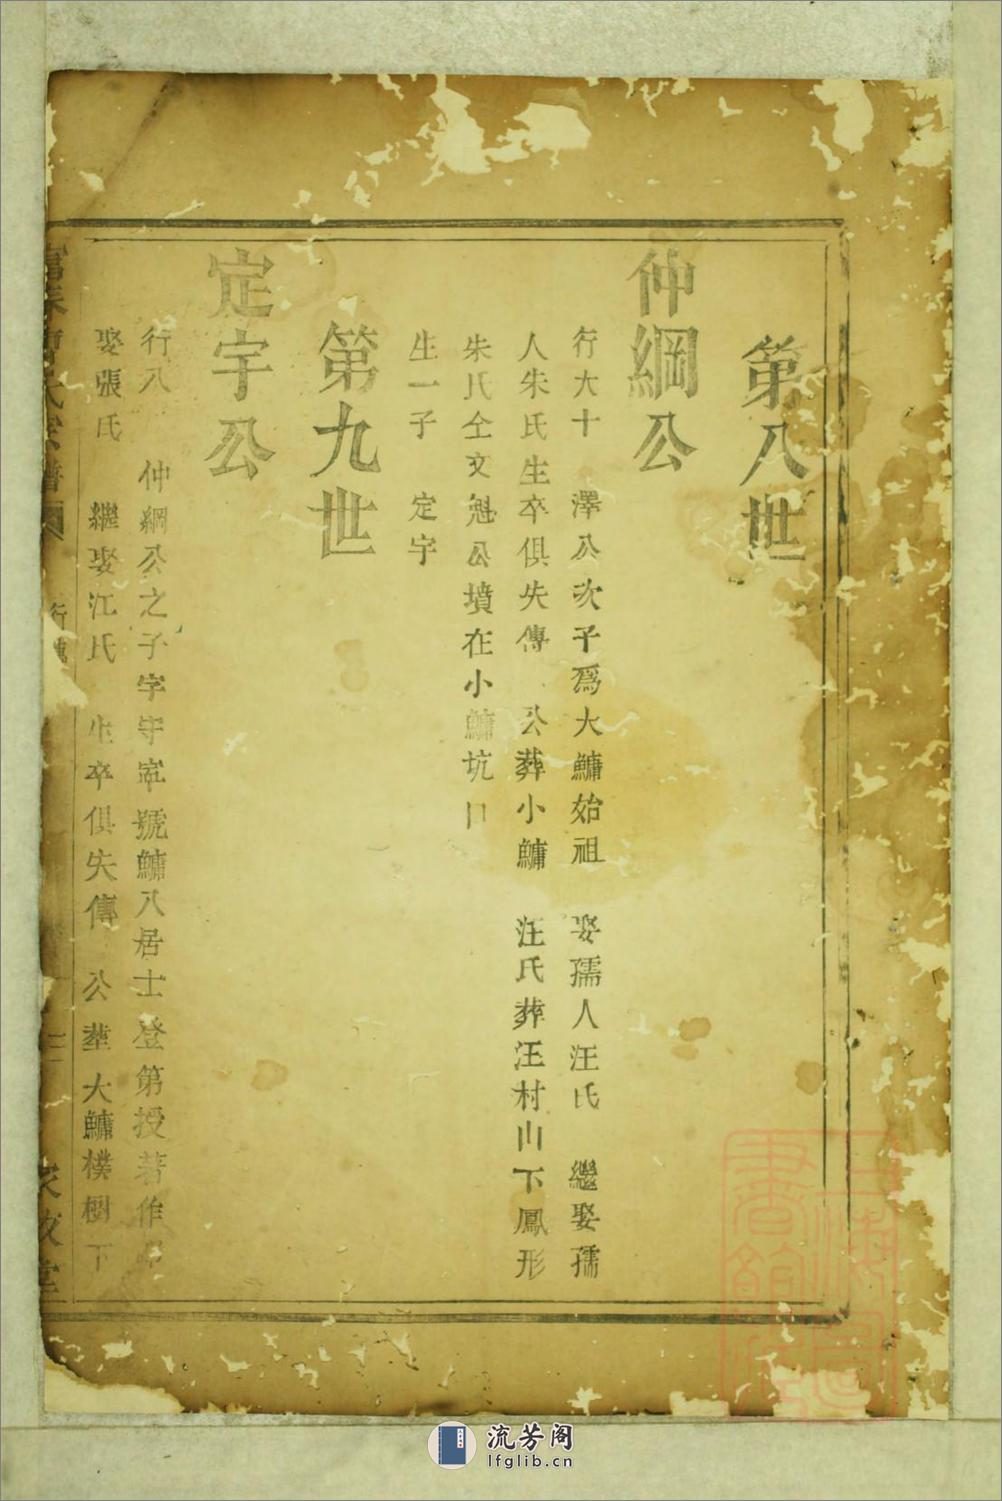 第八世
仲綱公
行大十 澤公次子爲大鱅始祖 娶孺人汪氏 繼娶孺
人朱氏生卒俱失傳 公葬小鱅 汪氏葬汪村山下鳳形
朱氏仝文魁公墳在小鱅坑口
生一子 定宇
第九世
定宇公
行八 仲綱公之子字守寔號鱅八居士登第授著作
娶張氏 繼娶江氏 生卒俱失傳 公塟大鱅樸樹下
氏宗譜 行
二 敘堂
上海圖書館藏
流芳阁
lfglib.cn